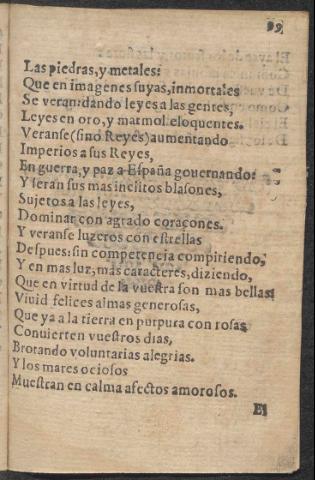 99
Las piedras, y metales:
Que en imagenes suyas, inmortales
Se veran: dando leyes a las gentes,
Leyes en oro, y marmol eloquentes.
Veranse (sino Reyes) aumentando
Imperios a sus Reyes,
En guerra, y paz a España gouernando:
Y seran sus mas inclitos blasones,
Sujetos a las leyes,
Dominar con agrado coraçones.
Y veranse luzeros con estrellas
Despues: sin competencia compitiendo,
Y en mas luz, mas caracteres, diziendo,
Que en virtud de la vuestra son mas bellas:
Viuid felices almas generosas,
Que ya a la tierra en purpura con rosas
Conuierten vuestros dias,
Brotando voluntarias alegrias.
Y los mares ociosos
Muestran en calma afectos amorosos.
El